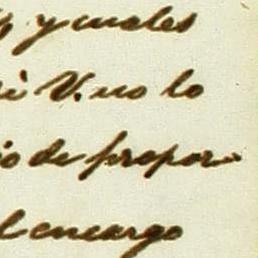 y cuales
V. no lo
io de propor
el encargo